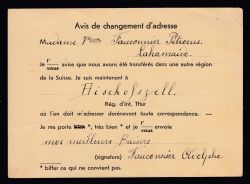 Avis de changement d'adresse
Madame Vve Fauconnier Pétronis
Lahamaide
Je l' vous avise que nous avons été transférés dans une autre région
de la Suisse. Je suis maintenant à
Bischofszell
Rég. d'Int. Thur
où l'on doit m'adresser dorénavant toute correspondance.
Je me porte bien *, très bien * et je t' vous envoie
mes meilleurs Baisers
(signature) Fauconnier
* biffer ce qui ne convient pas.